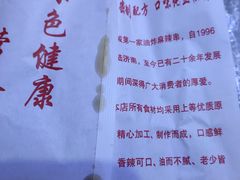 色健康
独特配方 口味
第一家油炸麻辣串，自1996
济南，至今已有二十余年发展
期间深得广大消费者的厚爱。
本店所有食材均采用上等优质原
精心加工、制作而成，口感鲜
香辣可口、油而不腻、老少皆